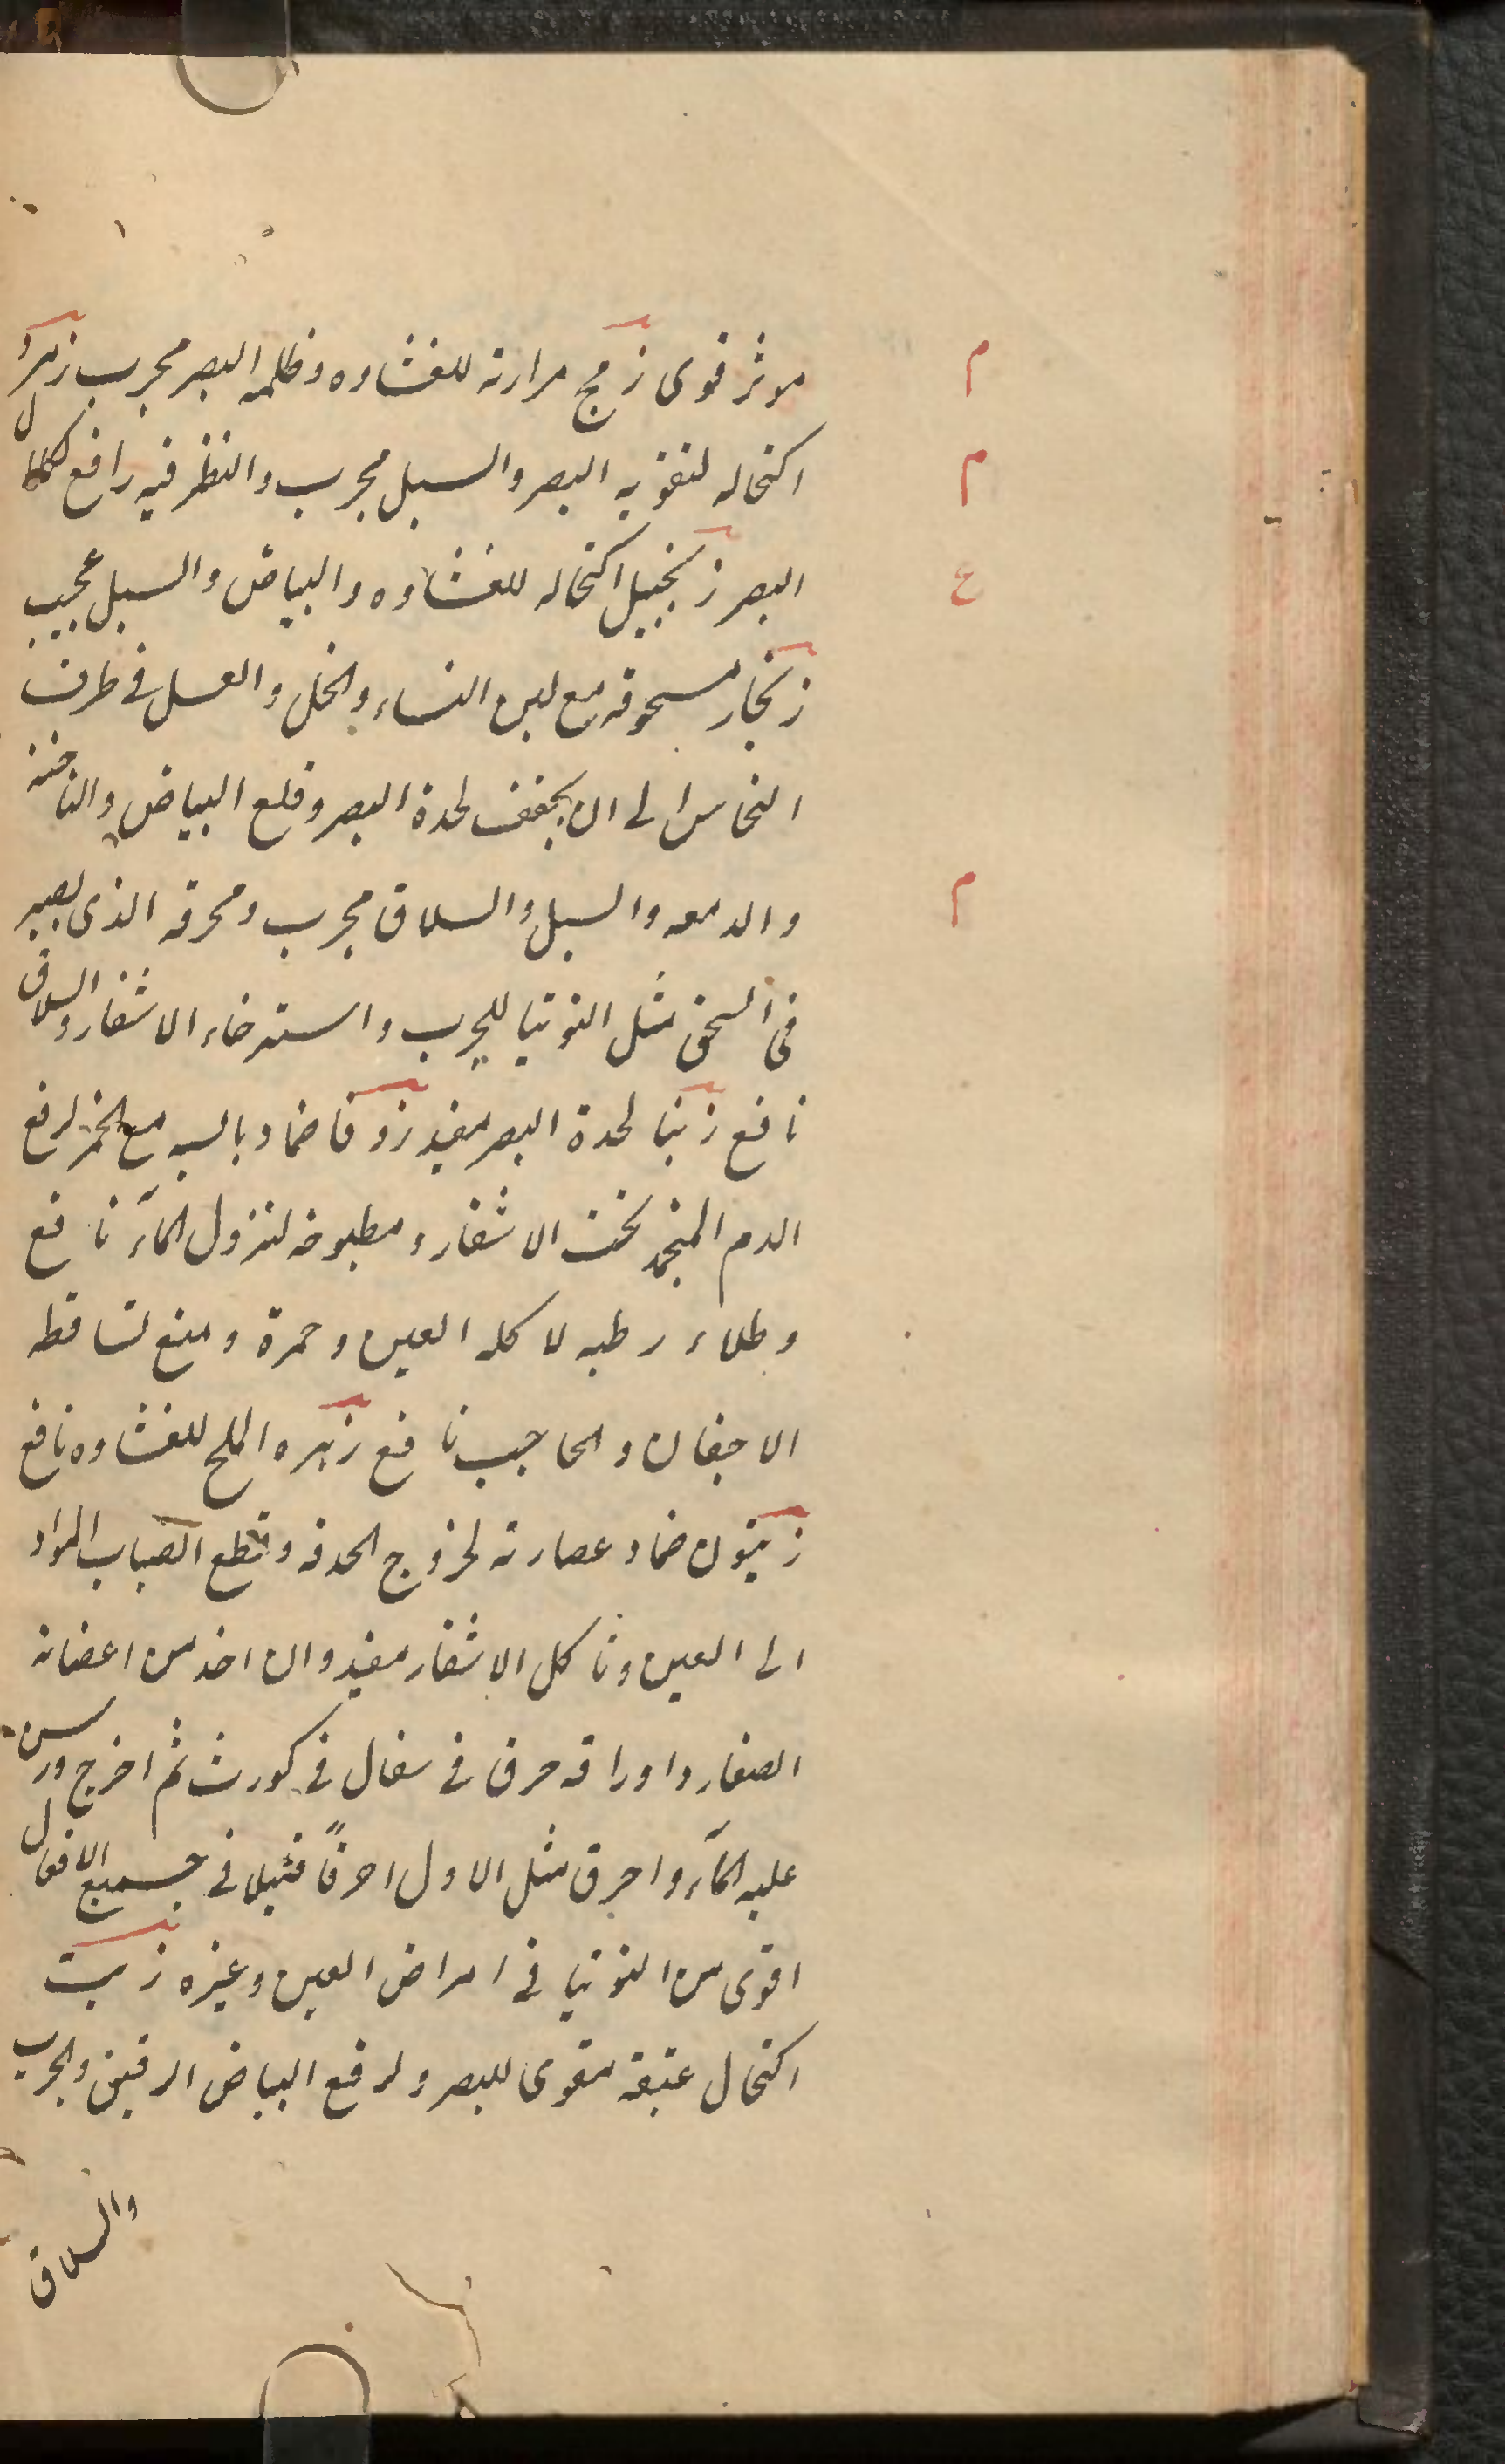 م
موثر قوی زمج مرارته للغشاوه وظلمه البصر مجرب زمرد
م
اکتحاله لتقویه البصر والسبل مجرب والنظر فیه رافع لکلال
ع
البصر زنجبیل اکتحاله للغشاوه والبیاض والسبل عجیب
زنجار مسحوقه مع لبن النساء والخل والعسل فی ظرف
النحاس الی ان یجفف لحدة البصر وقلع البیاض والناخنه
م
والدمعه والسبل والسلاق مجرب ومحرقه الذی یصیر
فی السحق مثل التوتیا للجرب واسترخاء الاشفار والسلاق
نافع زنبا لحدة البصر مفید زوفا ضماد یابسه مع الخمر لرفع
الدم المنجمد تحت الاشفار ومطبوخه لنزول المآء نافع
وطلاء رطبه لاکله العین وحمرة ومنع تساقطه
الاجفان والحاجب نافع زهره الملح للغشاوه نافع
زیتون ضماد عصارته لخروج الحدقه وقطع انصباب المواد
الی العین وتاکل الاشفار مفید وان اخذ من اعضانه
الصغار واوراقه حرق فی سفال فی کورث ثم اخرج ورس
علیه المآء واحرق مثل الاول احرقاً فثیلا فی جمیع الافعال
اقوی من التوتیا فی امراض العین وغیره زیت
اکتحال عتیقه مقوی للبصر ولرفع البیاض الرقیق والجرب
والسلاق